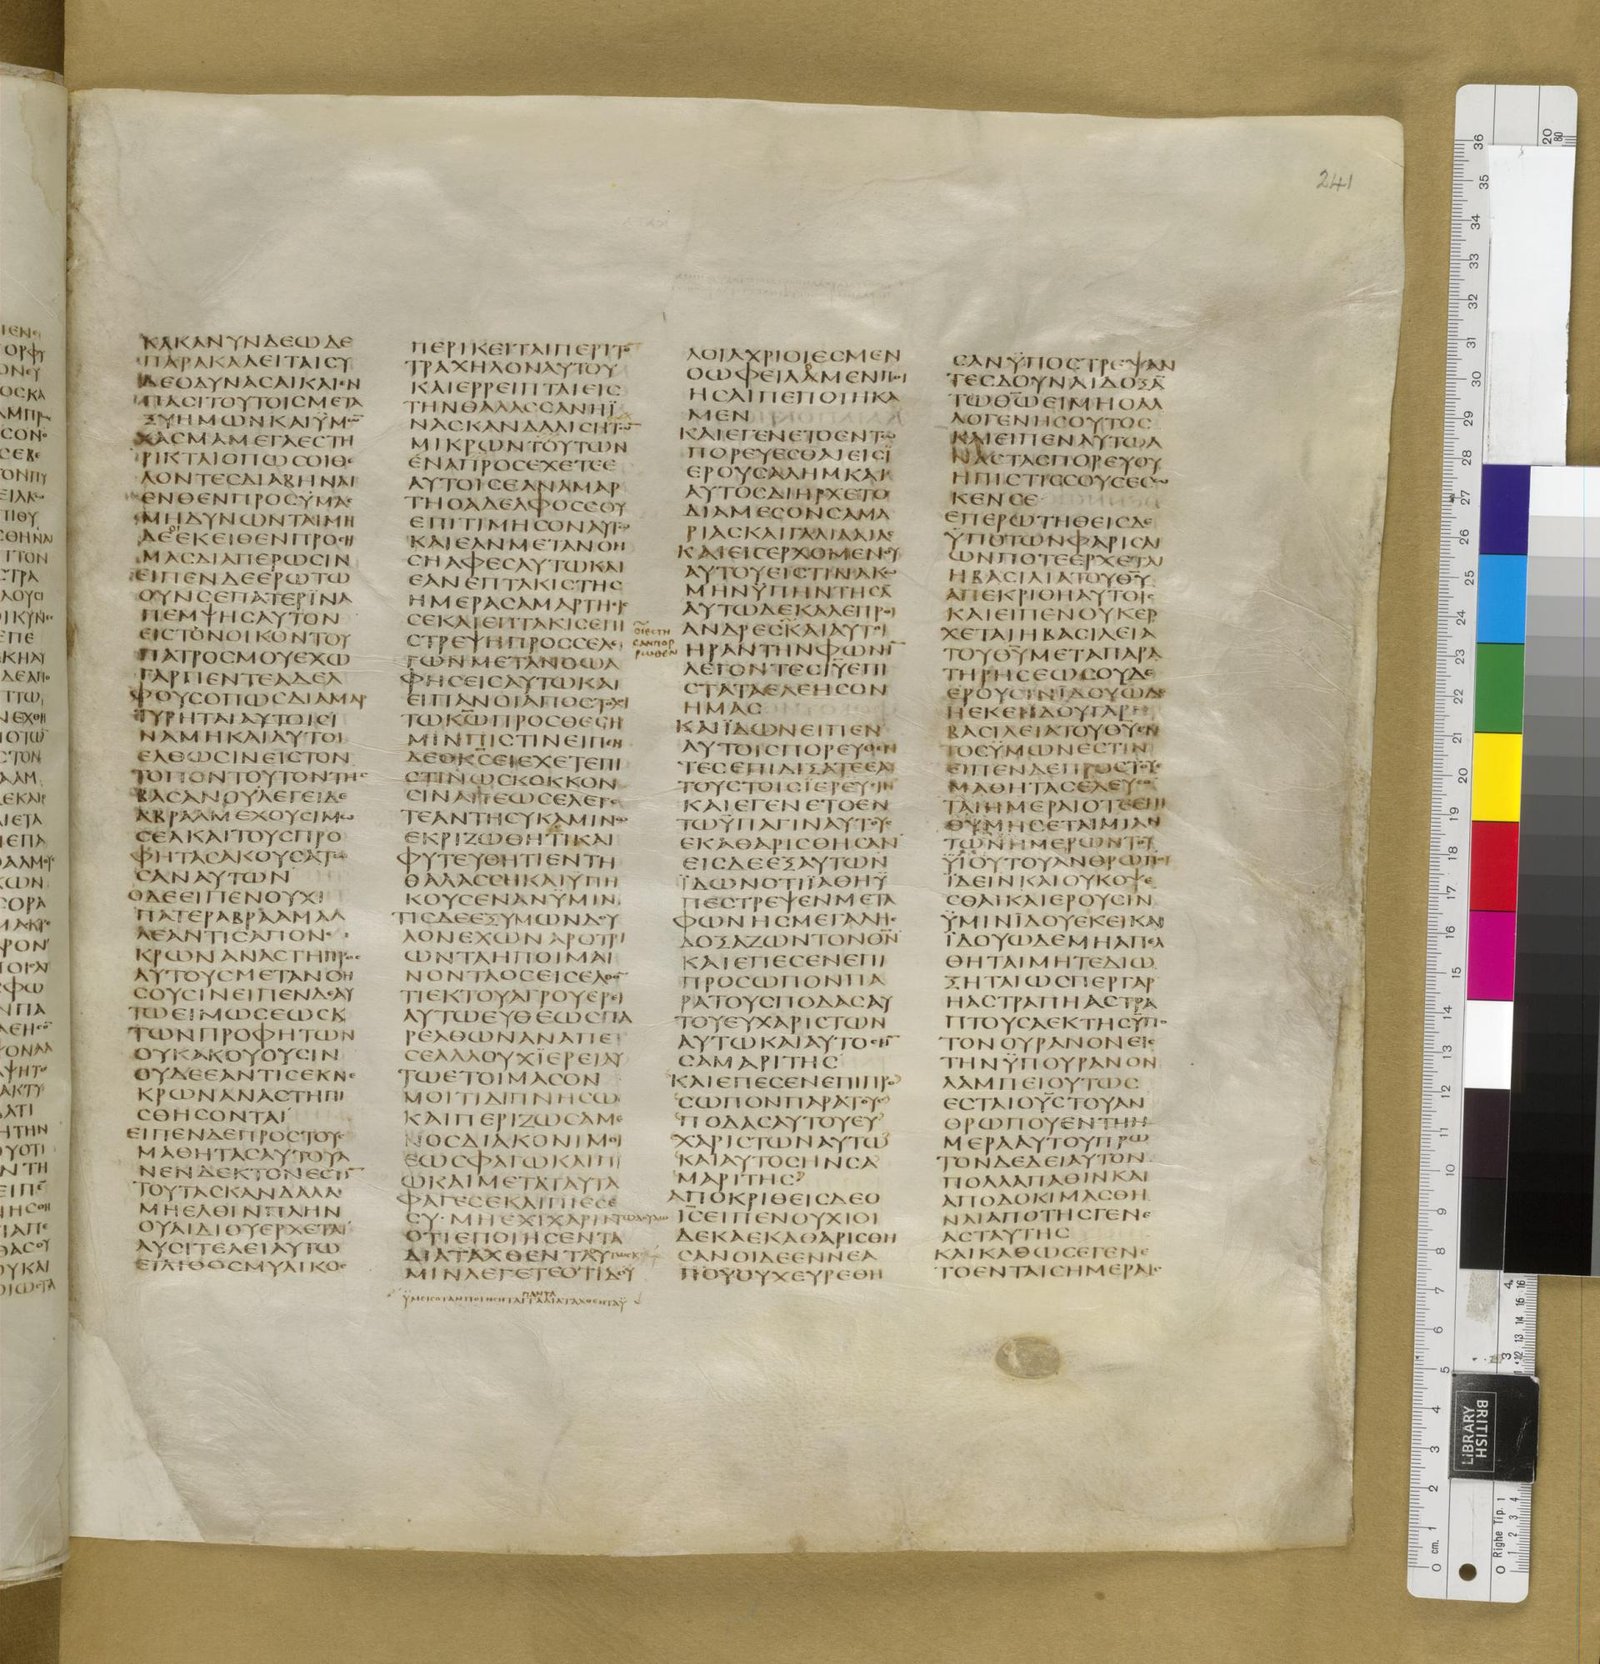 241
ΚΑΚΑΝΥΝΔΕΩΔΕ
ΠΑΡΑΚΑΛΕΙΤΑΙCΥ
ΔΕΟΔΥΝΑCΑΙΚΑΙΕΝ
ΠΑCΙΤΟΥΤΟΙCΜΕΤΑ
ΞΥΗΜΩΝΚΑΙΫΜΩ̅
ΧΑCΜΑΜΕΓΑΕCΤΗ
ΡΙΚΤΑΙΟΠΩCΟΙΘΕ
ΛΟΝΤΕCΔΙΑΒΗΝΑΙ
ΕΝΘΕΝΠΡΟCΫΜΑC
ΜΗΔΥΝΩΝΤΑΙΜΗ
ΔΕΟΙΕΚΕΙΘΕΝΠΡΟCΗ
ΜΑCΔΙΑΠΕΡΩCΙΝ
ΕΙΠΕΝΔΕΕΡΩΤΩ
ΟΥΝCΕΠΑΤΕΡΪΝΑ
ΠΕΜΨΗCΑΥΤΟΝ
ΕΙCΤΟΝΟΙΚΟΝΤΟΥ
ΠΑΤΡΟCΜΟΥΕΧΩ
ΓΑΡΠΕΝΤΕΑΔΕΛ
ΦΟΥCΟΠΩCΔΙΑΜΑΡ
ΤΥΡΗΤΑΙΑΥΤΟΙCΙ
ΝΑΜΗΚΑΙΑΥΤΟΙ
ΕΛΘΩCΙΝΕΙCΤΟΝ
ΤΟΠΟΝΤΟΥΤΟΝΤΗC
ΒΑCΑΝΟΥΛΕΓΕΙΔΕ
ΑΒΡΑΑΜΕΧΟΥCΙΜΩ
CΕΑΚΑΙΤΟΥCΠΡΟ
ΦΗΤΑCΑΚΟΥCΑΤΩ
CΑΝΑΥΤΩΝ
ΟΔΕΕΙΠΕΝΟΥΧΙ
ΠΑΤΕΡΑΒΡΑΑΜΑΛ
ΛΕΑΝΤΙCΑΠΟΝΕ
ΚΡΩΝΑΝΑCΤΗΠΡΟC
ΑΥΤΟΥCΜΕΤΑΝΟΗ
CΟΥCΙΝΕΙΠΕΝΔΕΑΥ
ΤΩΕΙΜΩCΕΩCΚ
ΤΩΝΠΡΟΦΗΤΩΝ
ΟΥΚΑΚΟΥΟΥCΙΝ
ΟΥΔΕΕΑΝΤΙCΕΚΝΕ
ΚΡΩΝΑΝΑCΤΗΠΙ
CΘΗCΟΝΤΑΙ
ΕΙΠΕΝΔΕΠΡΟCΤΟΥC
ΜΑΘΗΤΑCΑΥΤΟΥΑ
ΝΕΝΔΕΚΤΟΝΕCΤΙ̅
ΤΟΥΤΑCΚΑΝΔΑΛΑ
ΜΗΕΛΘΙΝΠΛΗΝ
ΟΥΑΙΔΙΟΥΕΡΧΕΤΑΙ
ΛΥCΙΤΕΛΕΙΑΥΤΩ
ΕΙΛΙΘΟCΜΥΛΙΚΟC
ΠΕΡΙΚΕΙΤΑΙΠΕΡΙΤΟ̅
ΤΡΑΧΗΛΟΝΑΥΤΟΥ
ΚΑΙΕΡΡΕΙΠΤΑΙΕΙC
ΤΗΝΘΑΛΑCCΑΝΗΪ
ΝΑCΚΑΝΔΑΛΙCΗΤΩ̅
ΜΙΚΡΩΝΤΟΥΤΩΝ
ΕΝΑΠΡΟCΕΧΕΤΕΕ
ΑΥΤΟΙCΕΑΝΑΜΑΡ
ΤΗΟΑΔΕΛΦΟCCΟΥ
ΕΠΙΤΙΜΗCΟΝΑΥΤΩ
ΚΑΙΕΑΝΜΕΤΑΝΟΗ
CΗΑΦΕCΑΥΤΩΚΑΙ
ΕΑΝΕΠΤΑΚΙCΤΗC
ΗΜΕΡΑCΑΜΑΡΤΗΕΙC
CΕΚΑΙΕΠΤΑΚΙCΕΠΙ
CΤΡΕΨΗΠΡΟCCΕΛΕ
ΓΩΝΜΕΤΑΝΟΩΑ
ΦΗCΕΙCΑΥΤΩΚΑΙ
ΕΙΠΑΝΟΙΑΠΟCΤΟΛΟΙ
ΤΩΚ̅Ω̅ΠΡΟCΘΕCΗ
ΜΙΝΠΙCΤΙΝΕΙΠΕΝ
ΔΕΟΚ̅C̅ΕΙΕΧΕΤΕΠΙ
CΤΙΝΩCΚΟΚΚΟΝ
CΙΝΑΠΕΩCΕΛΕΓΕ
ΤΕΑΝΤΗCΥΚΑΜΙΝΩ
ΕΚΡΙΖΩΘΗΤΙΚΑΙ
ΦΥΤΕΥΘΗΤΙΕΝΤΗ
ΘΑΛΑCCΗΚΑΙΥΠΗ
ΚΟΥCΕΝΑΝΫΜΙΝ
ΤΙCΔΕΕΞΥΜΩΝΔΟΥ
ΛΟΝΕΧΩΝΑΡΟΤΡΙ
ΩΝΤΑΗΠΟΙΜΑΙ
ΝΟΝΤΑΟCΕΙCΕΛΘΟ̅
ΤΙΕΚΤΟΥΑΓΡΟΥΕΡΕΙ
ΑΥΤΩΕΥΘΕΩCΠΑ
ΡΕΛΘΩΝΑΝΑΠΕ
CΕΑΛΛΟΥΧΪΕΡΕΙΑΥ
ΤΩΕΤΟΙΜΑCΟΝ
ΜΟΙΤΙΔΙΠΝΗCΩ
ΚΑΙΠΕΡΙΖΩCΑΜΕ
ΝΟCΔΙΑΚΟΝΙΜΟΙ
ΕΩCΦΑΓΩΚΑΙΠΙ
ΩΚΑΙΜΕΤΑΤΑΥΤΑ
ΦΑΓΕCΕΚΑΙΠΙΕCΕ
CΥ·ΜΗΕΧΙΧΑΡΙΝΤΩΔΟΥΛΩ
ΟΤΙΕΠΟΙΗCΕΝΤΑ
ΔΙΑΤΑΧΘΕΝΤΑ
ΜΙΝΛΕΓΕΤΕΟΤΙΔΟΥ
ΠΑΝΤΑ
ΫΜΕΙCΟΤΑΝΠΟΙΗCΗΤΑΙΤΑΔΙΑΤΑΧΘΕΝΤΑΫ
ΟΙΕCΤΗ
CΑΝΠΟΡ
ΡΩΘΕΝ
ΛΟΙΑΧΡΙΟΙΕCΜΕΝ
ΟΩΦΕΙΛΑΜΕΝΠΟΙ
ΗCΑΙΠΕΠΟΙΗΚΑ
ΜΕΝ
ΚΑΙΕΓΕΝΕΤΟΕΝΤΩ
ΠΟΡΕΥΕCΘΑΙΕΙCΪ
ΕΡΟΥCΑΛΗΜΚΑΙ
ΑΥΤΟCΔΙΗΡΧΕΤΟ
ΔΙΑΜΕCΟΝCΑΜΑ
ΡΙΑCΚΑΙΓΑΛΙΛΑΙΑC
ΚΑΙΕΙCΕΡΧΟΜΕΝΟΥ
ΑΥΤΟΥΕΙCΤΙΝΑΚΩ
ΜΗΝΫΠΗΝΤΗCΑ̅
ΑΥΤΩΔΕΚΑΛΕΠΡΟΙ
ΑΝΔΡΕCΚΑΙΑΥΤΟΙ
ΗΡΑΝΤΗΝΦΩΝΗ̅
ΛΕΓΟΝΤΕCΙ̅Υ̅ΕΠΙ
CΤΑΤΑΕΛΕΗCΟΝ
ΗΜΑC
ΚΑΙΪΔΩΝΕΙΠΕΝ
ΑΥΤΟΙCΠΟΡΕΥΘΕΝ
ΤΕCΕΠΙΔΙΞΑΤΕΕΑ
ΤΟΥCΤΟΙCΪΕΡΕΥCΙΝ
ΚΑΙΕΓΕΝΕΤΟΕΝ
ΤΩΫΠΑΓΙΝΑΥΤΟΥC
ΕΚΑΘΑΡΙCΘΗCΑΝ
ΕΙCΔΕΕΞΑΥΤΩΝ
ΪΔΩΝΟΤΙΪΑΘΗΫ
ΠΕCΤΡΕΨΕΝΜΕΤΑ
ΦΩΝΗCΜΕΓΑΛΗC
ΔΟΞΑΖΩΝΤΟΝΘ̅Ν̅
ΚΑΙΕΠΕCΕΝΕΠΙ
ΠΡΟCΩΠΟΝΠΑ
ΡΑΤΟΥCΠΟΔΑCΑΥ
ΤΟΥΕΥΧΑΡΙCΤΩΝ
ΑΥΤΩΚΑΙΑΥΤΟCΗ̅
CΑΜΑΡΙΤΗC
ΚΑΙΕΠΕCΕΝΕΠΙΠΡΟ
CΩΠΟΝΠΑΡΑΤΟΥC
ΠΟΔΑCΑΥΤΟΥΕΥ
ΧΑΡΙCΤΩΝΑΥΤΩ
ΚΑΙΑΥΤΟCΗΝCΑ
ΜΑΡΙΤΗC
ΑΠΟΚΡΙΘΕΙCΔΕΟ
Ι̅C̅ΕΙΠΕΝΟΥΧΙΟΙ
ΔΕΚΑΕΚΑΘΑΡΙCΘΗ
CΑΝΟΙΔΕΕΝΝΕΑ
ΠΟΥΟΥΧΕΥΡΕΘΗ
CΑΝΫΠΟCΤΡΕΨΑΝ
ΤΕCΔΟΥΝΑΙΔΟΞΑ̅
ΤΩΘ̅Ω̅ΕΙΜΗΟΑΛ
ΛΟΓΕΝΗCΟΥΤΟC
ΚΑΙΕΙΠΕΝΑΥΤΩΑ
ΝΑCΤΑCΠΟΡΕΥΟΥ
ΗΠΙCΤΙCCΟΥCΕCΩ
ΚΕΝCΕ
ΕΠΕΡΩΤΗΘΕΙCΔΕ
ΫΠΟΤΩΝΦΑΡΙCΑΙ
ΩΝΠΟΤΕΕΡΧΕΤΑΙ
ΗΒΑCΙΛΙΑΤΟΥΘ̅Υ̅
ΑΠΕΚΡΙΘΗΑΥΤΟΙC
ΚΑΙΕΙΠΕΝΟΥΚΕΡ
ΧΕΤΑΙΗΒΑCΙΛΕΙΑ
ΤΟΥΘ̅Υ̅ΜΕΤΑΠΑΡΑ
ΤΗΡΗCΕΩCΟΥΔΕ
ΕΡΟΥCΙΝΪΔΟΥΩΔΕ
ΗΕΚΕΙΪΔΟΥΓΑΡΗ
ΒΑCΙΛΕΙΑΤΟΥΘ̅Υ̅ΕΝ
ΤΟCΫΜΩΝΕCΤΙΝ
ΕΙΠΕΝΔΕΠΡΟCΤΟΥC
ΜΑΘΗΤΑCΕΛΕΥCΟ
ΤΑΙΗΜΕΡΑΙΟΤΕΕΠΙ
ΘΥΜΗCΕΤΑΙΜΙΑΝ
ΤΩΝΗΜΕΡΩΝΤΟΥ
ΫΙΟΥΤΟΥΑΝΘΡΩΠΟΥ
ΪΔΕΙΝΚΑΙΟΥΚΟΨΕ
CΘΑΙΚΑΙΕΡΟΥCΙΝ
ΫΜΙΝΪΔΟΥΕΚΕΙΚΑΙ
ΪΔΟΥΩΔΕΜΗΑΠΕΛ
ΘΗΤΑΙΜΗΤΕΔΙΩ
ΞΗΤΑΙΩCΠΕΡΓΑΡ
ΗΑCΤΡΑΠΗΑCΤΡΑ
ΠΤΟΥCΑΕΚΤΗCΫΠΟ
ΤΟΝΟΥΡΑΝΟΝΕΙC
ΤΗΝΫΠΟΥΡΑΝΟΝ
ΛΑΜΠΕΙΟΥΤΩC
ΕCΤΑΙΟΥ̅C̅ΤΟΥΑΝ
ΘΡΩΠΟΥΕΝΤΗΗ
ΜΕΡΑΑΥΤΟΥΠΡΩ
ΤΟΝΔΕΔΕΙΑΥΤΟΝ
ΠΟΛΛΑΠΑΘΙΝΚΑΙ
ΑΠΟΔΟΚΙΜΑCΘΗ
ΝΑΙΑΠΟΤΗCΓΕΝΕ
ΑCΤΑΥΤΗC
ΚΑΙΚΑΘΩCΕΓΕΝΕ
ΤΟΕΝΤΑΙCΗΜΕΡΑΙC
BRITISH
LIBRARY
Righe Tip.
cm.